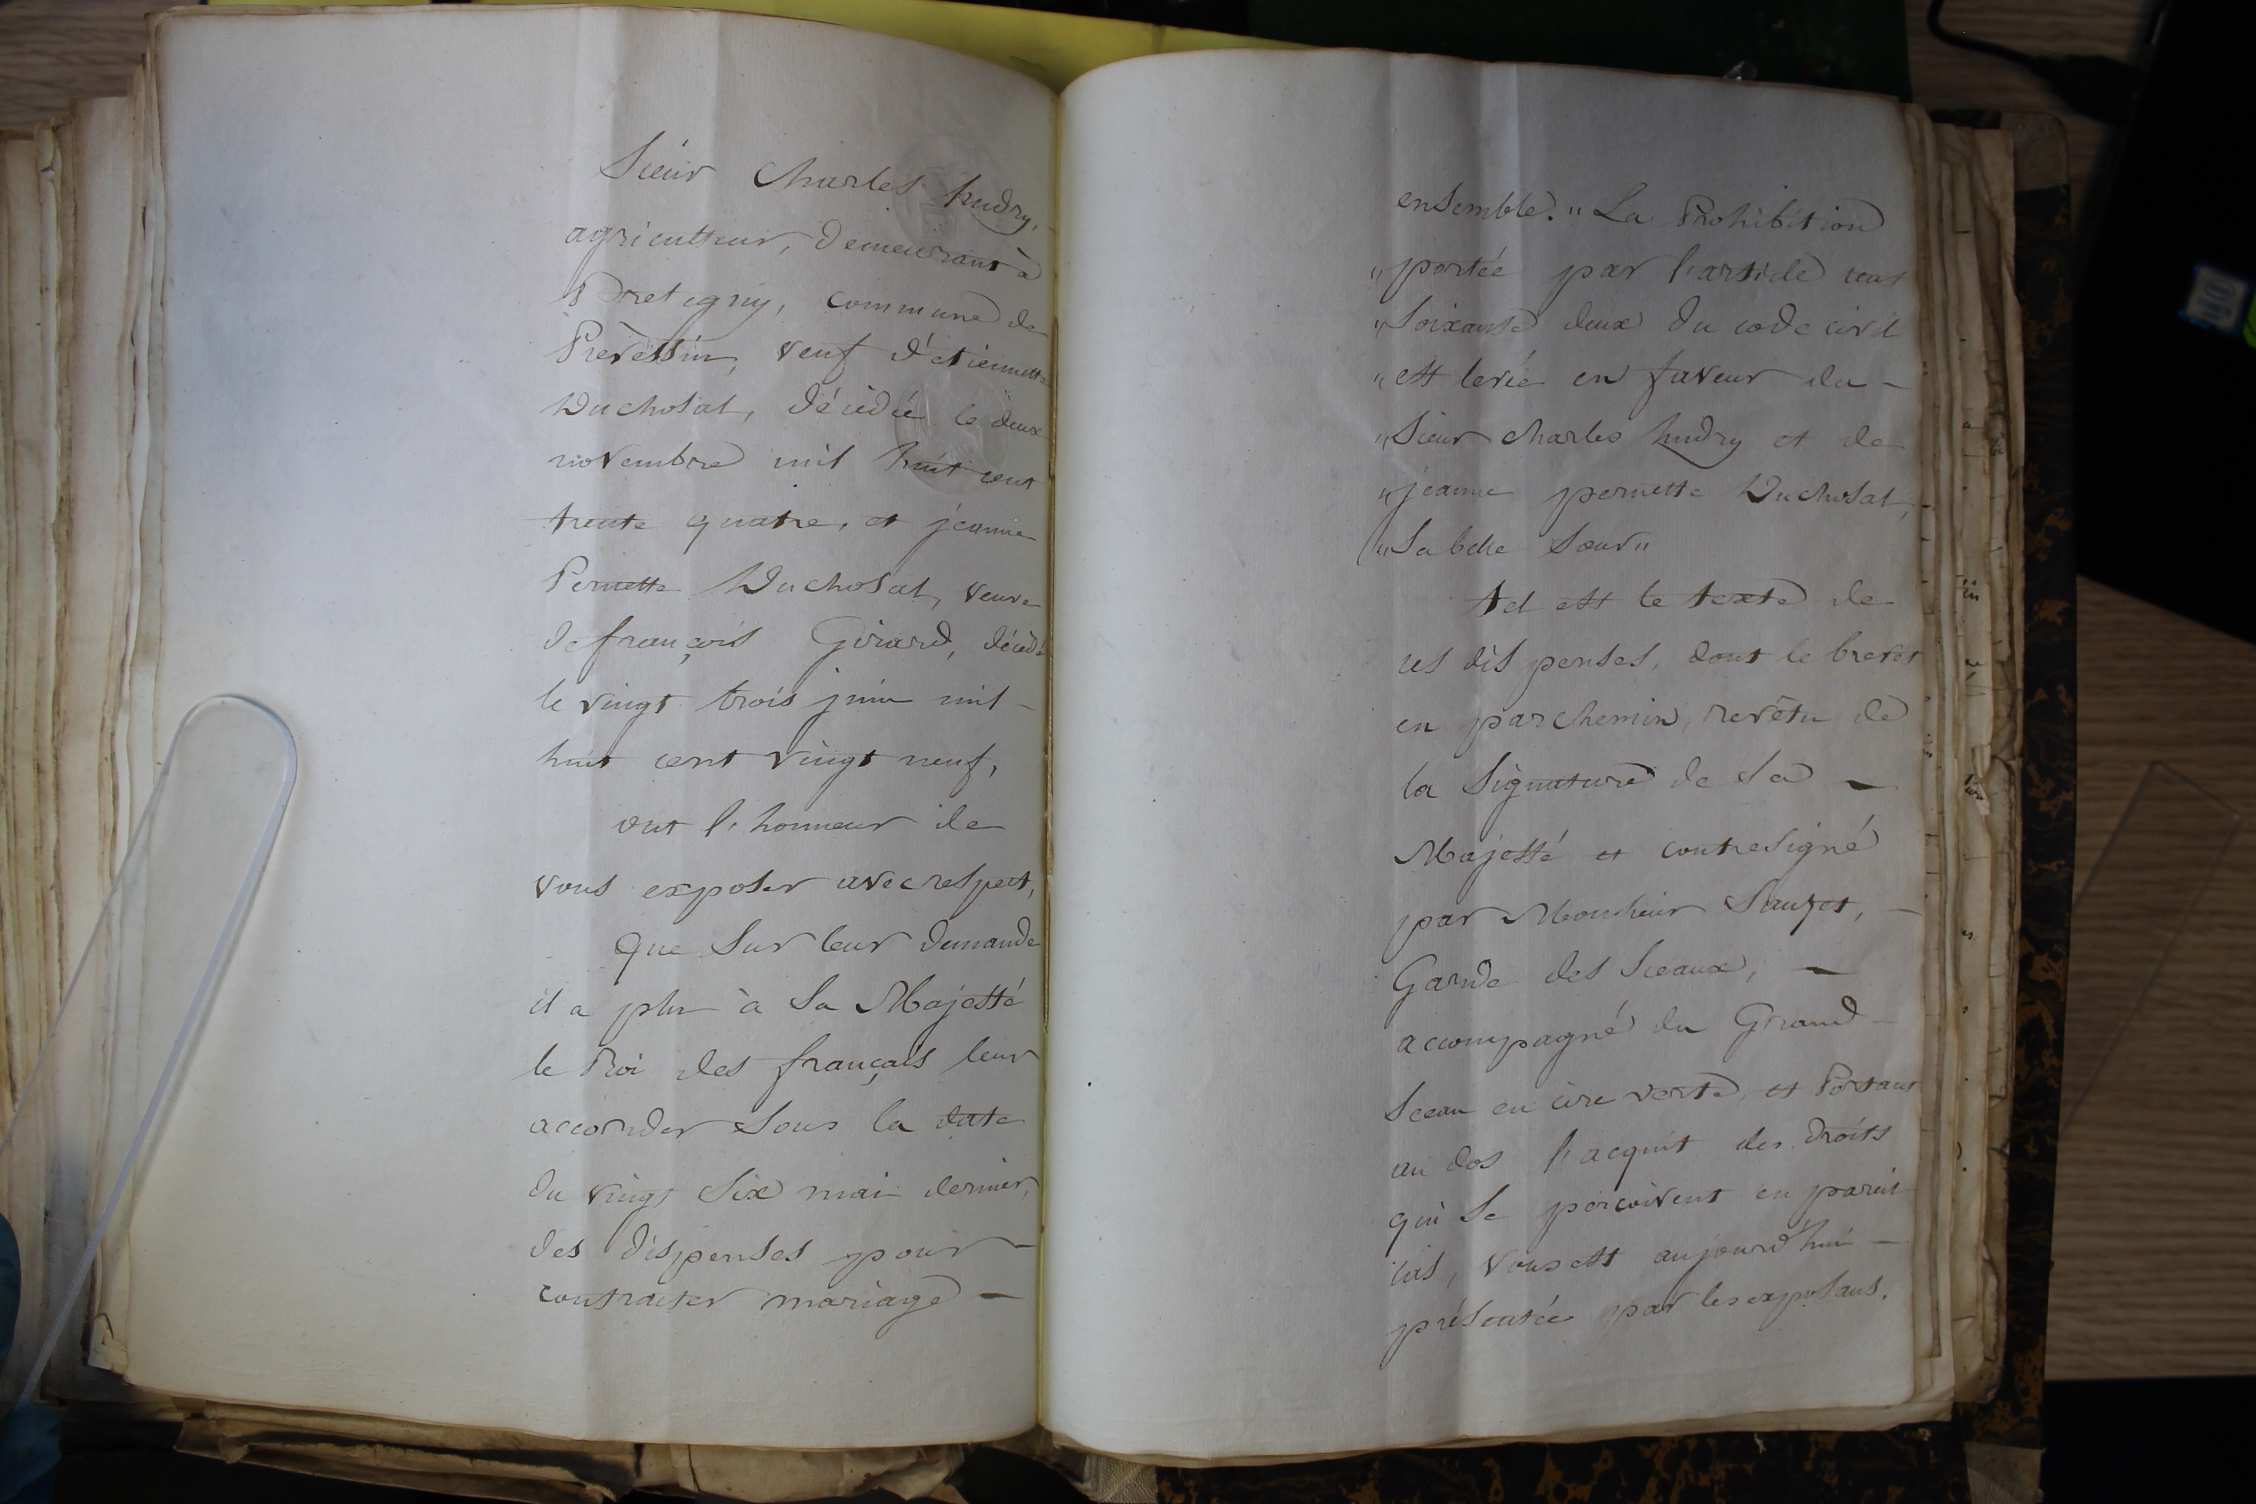 Sieur Charles hudry,
agriculteur, demeurant à
Bretigny, commune de
Prévessin, veuf d'étiennette
Duchosal, décédée le deux
novembre mil huit cent
trente quatre, et jeanne
Pernette Duchosal, veuve
de françois Girard, décédé
le vingt trois juin mil -
huit cent vingt neuf,
ont l'honneur de
vous exposer avec respect,
que sur leur demande
il a plu à Sa Majesté
le Roi des français leur
accorder sous la date
du vingt six mai dernier,
des dispenses pour -
contracter mariage -
ensemble. " La Prohibition
" portée par l'article cent
" soixante deux du code civil
" est levée en faveur du -
" Sieur Charles hudry et de
" jeanne pernette Duchosal,
" sa belle soeur "
tel est le texte de
ces dispenses, dont le brevet
en parchemin, revêtu de
la signature de Sa -
Majesté et contresigné
par Monsieur Sauzet, -
Garde des Sceaux, -
accompagné du Grand -
Sceau en cire verte, et Portant
au dos l'acquit des droits
qui se perçoivent en pareil
cas, vous est aujourd'hui -
présentée par les exposans.